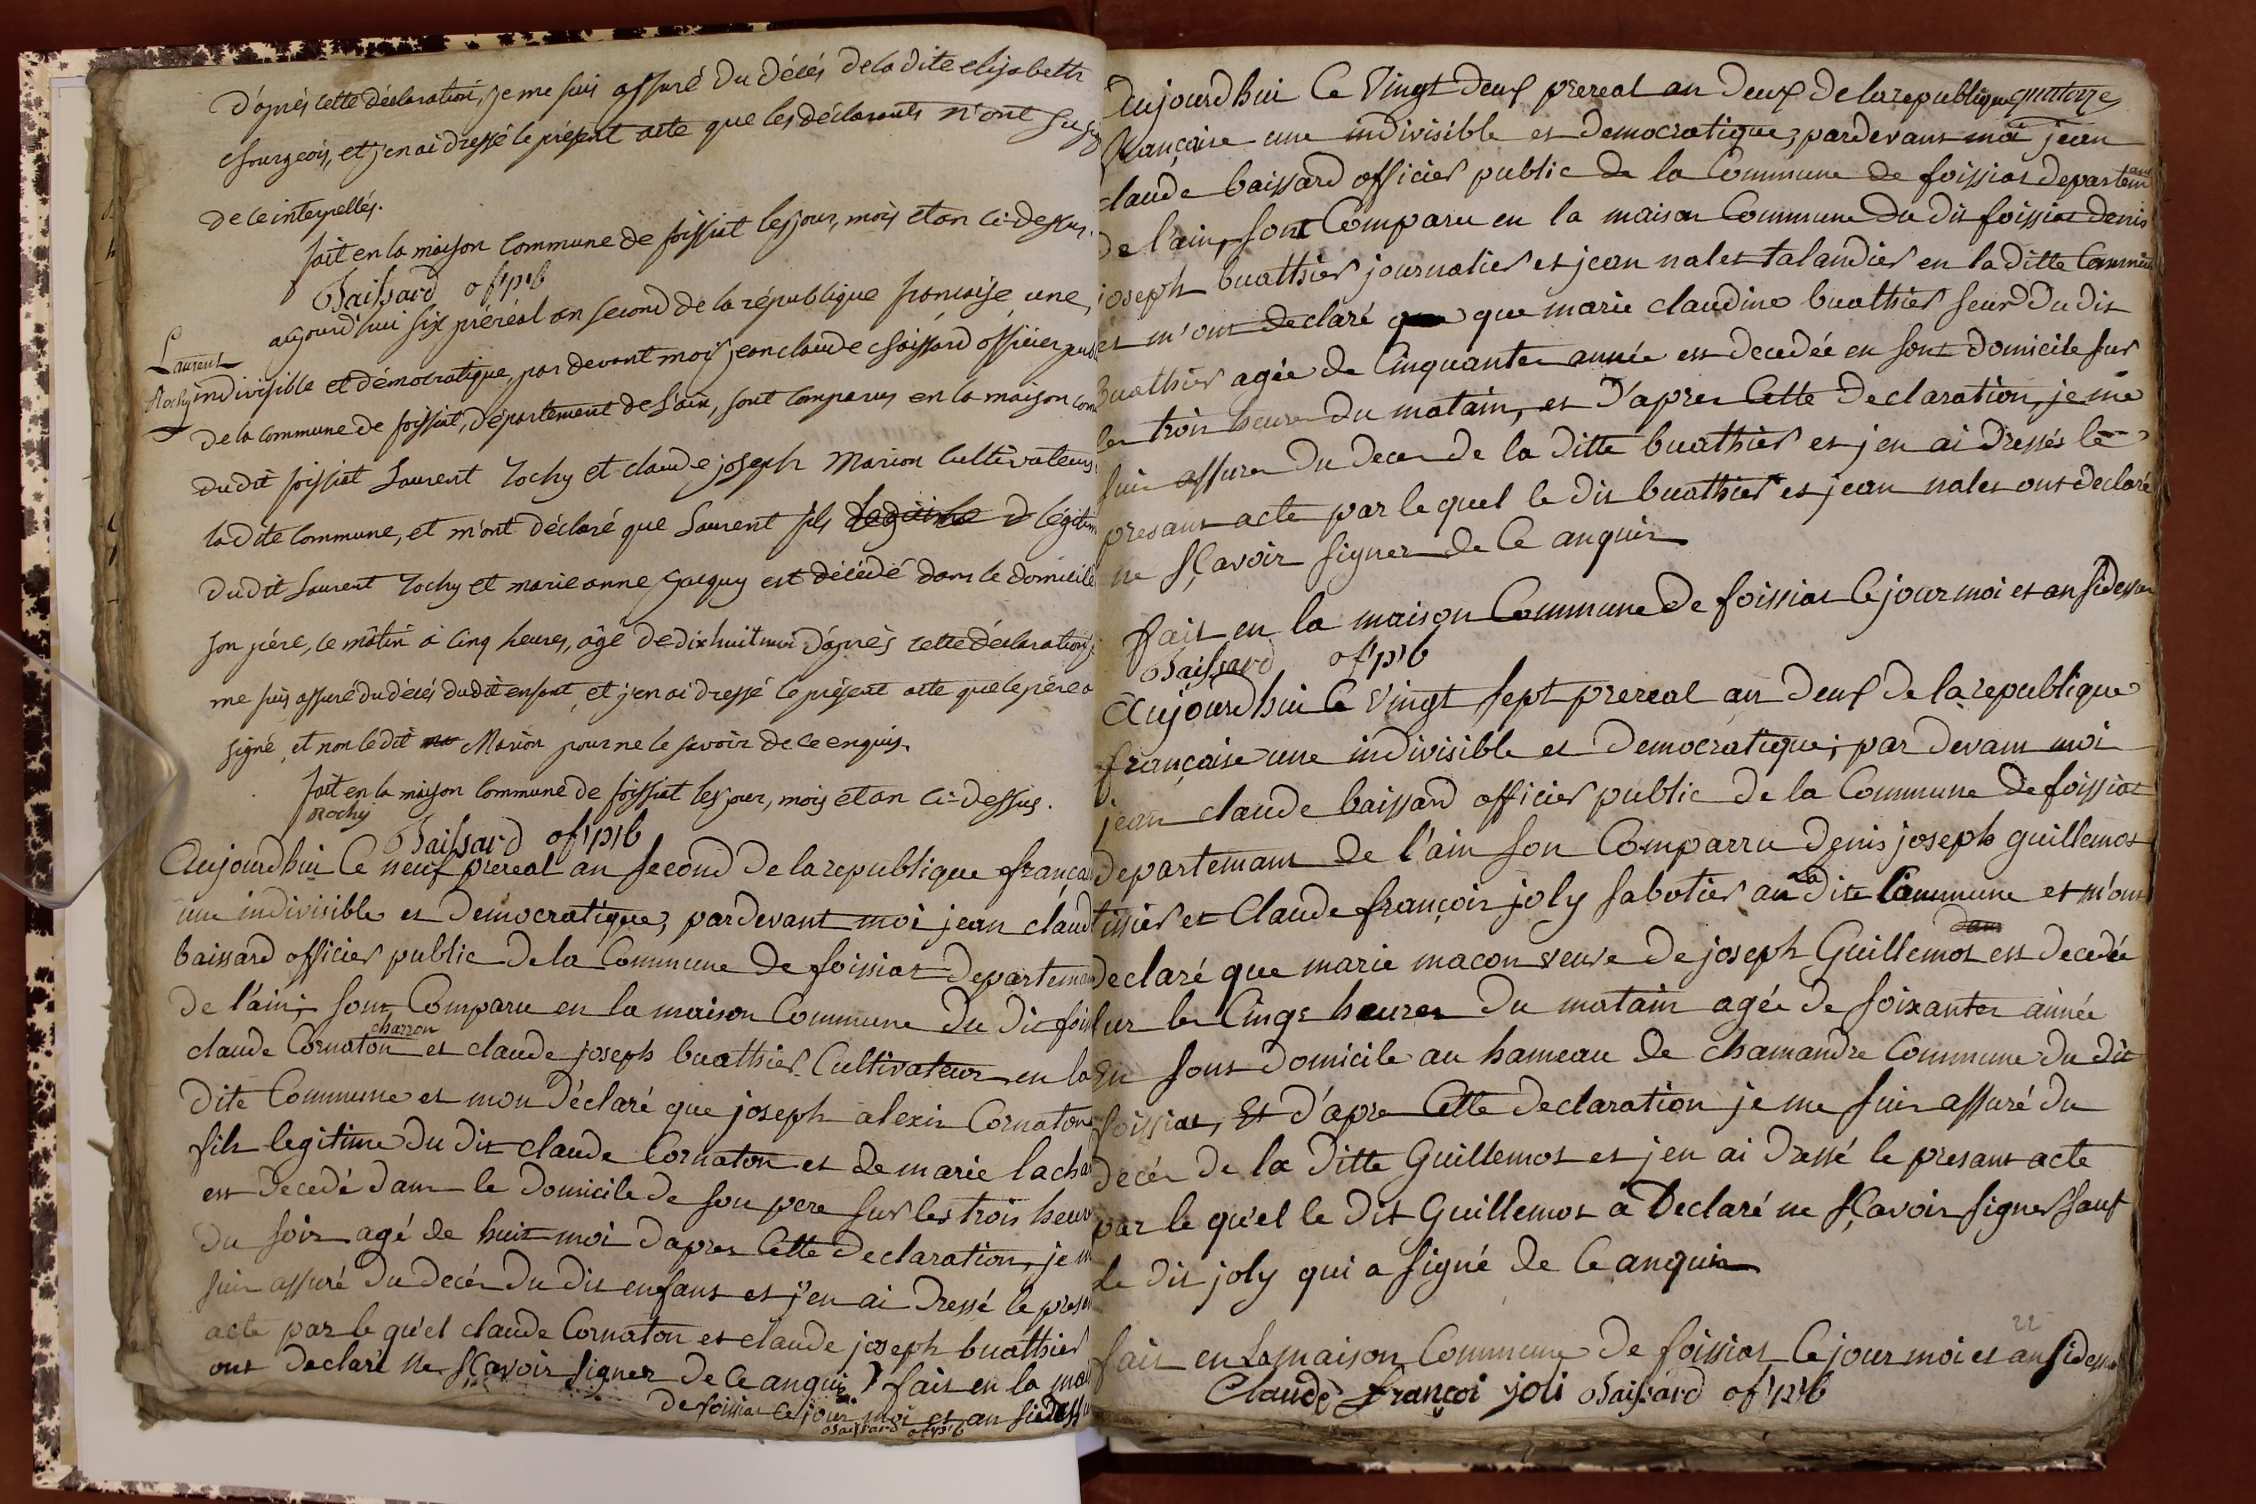 D'après cette déclaration, je me suis assuré du décés de la dite elisabeth
Bourgeois, et j'en ai dressé le présent acte que les déclarants n'ont su
de ce interpellés.
fait en la maison commune de foissiat les jour, mois et an ci-dessus.
Baissard of'p'b
aujourd'hui six préréal an second de la république francaise, une,
Laurent
Rochy
indivisible et démocratique, par devant moi jean claude Baissard officier pub
de la commune de foissiat, département de l'ain, sont comparus en la maison com
du dit foissiat Laurent Rochy et claude joseph Marion cultivateurs
la dite commune, et m'ont déclaré que Laurent fils légitim
du dit Laurent Rochy et marie anne Gacquy est décédé dans le domicile
son père, ce mâtin à cinq heures, âge de dix huit mois d'après cette déclaration, j
me suis assuré du décés du dit enfant, et j'en ai dressé le présent acte que le père a
signé, et non le dit Marion pour ne le savoir de ce enquis.
fait en la maison commune de foissiat les jour, mois et an ci-dessus.
Rochy
Baissard of'p'b
Aujourdhui le neuf prereal an second de la republique frança
une indivisible et democratique, pardevant moi jean claud
baissard officier public de la Commune de foissiat departeman
de l'ain, sont Comparu en la maison Commune du dit foiss
claude Cornaton charron et claude joseph buathier Cultivateur en la
dite Commune et mon déclaré que joseph alexis Cornaton
fils legitime du dit claude Cornaton et de marie lacha
est decedé dans le domicile de son pere sur les trois heur
du soir agé de huit moi dapres Cette declaration, je m
suis assuré du decés du dit enfant et j'en ai dressé le presa
acte par le qu'el claude Cornaton et claude joseph buathier
ont declaré ne sçavoir signer de ce anquis fait en la mai
de foissiat ce jour moi et an sidessu
Baissard of'p'b
Aujourdhui le Vingt deux prereal an deux de la republique quatorze
française une indivisible et democratique, pardevant moi jean
claude baissard officier public de la Commune de foissiat departem ant
de l'ain, sont Comparu en la maison Commune du dit foissiat denis
joseph buathier journalier et jean nalet talandier en la ditte Commune
et m'ont declaré que marie claudine buathier seur du dit
buathier agée de Cinquantes année est decedée en sont domicile sur
les trois heures du matain, et D'apres Cette declaration, je me
suis assurer du deces de la ditte buathier et jen ai dressés le
presant acte par le quel le dit buathier et jean nalet ont declaré
ne sçavoir signer de ce anquis
fait en la maison Commune de foissiat le jour moi et an sidessus
Baissard of'p'b
Aujourdhui le Vingt sept prereal an deux de la republique
française une indivisible et democratique, par devant moi
jean claude baissard officier public de la Commune de foissiat
departemant de l'ain son Comparru denis joseph guillemot
tissier et Claude françois joly sabotier an la dite Commune et m'ont
declaré que marie macon veuve de joseph Guillemot est decedée dans
sur les Cinqs heures du matain agée de soixantes année
En sont domicile au hameau de chamandre Commune du dit
foissiat, Et d'apre Cette declaration je me suis assuré du
decés de la ditte Guillemot et jen ai dressé le presant acte
par le qu'el le dit Guillemot a Declaré ne sçavoir signer sauf
le dit joly qui a signé de ce anquis
22
fait en la maison Commune de foissiat le jour moi et an sidessus
Claude françoi joli Baissard of'p'b